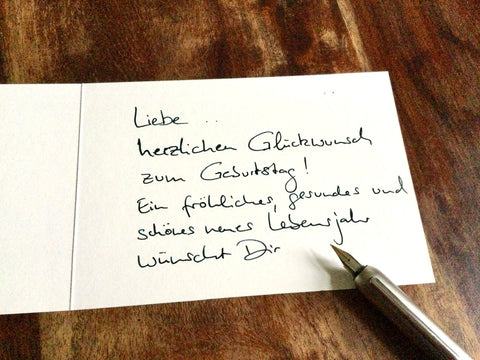 Liebe ..
herzlichen Glückwunsch
zum Geburtstag!
Ein fröhliches, gesundes und
schönes neues Lebensjahr
wünscht Dir